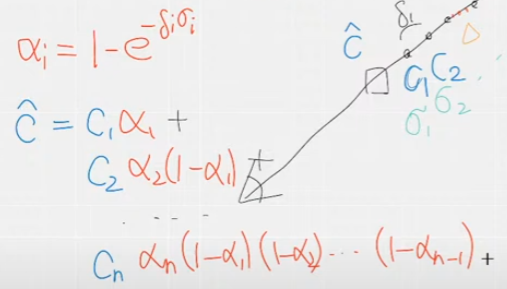 αᵢ = 1 - e^(-δᵢσᵢ)
Ĉ = C₁α₁ +
C₂ α₂(1-α₁) +
. - - -
Cₙ αₙ(1-α₁)(1-α₂)...(1-αₙ₋₁) +
Ĉ
δ₁
C₁ C₂ . .
σ₁ σ₂